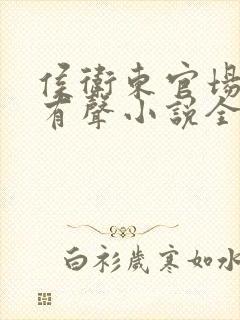 侯衛東官場
有聲小說全
白衫歲寒如水